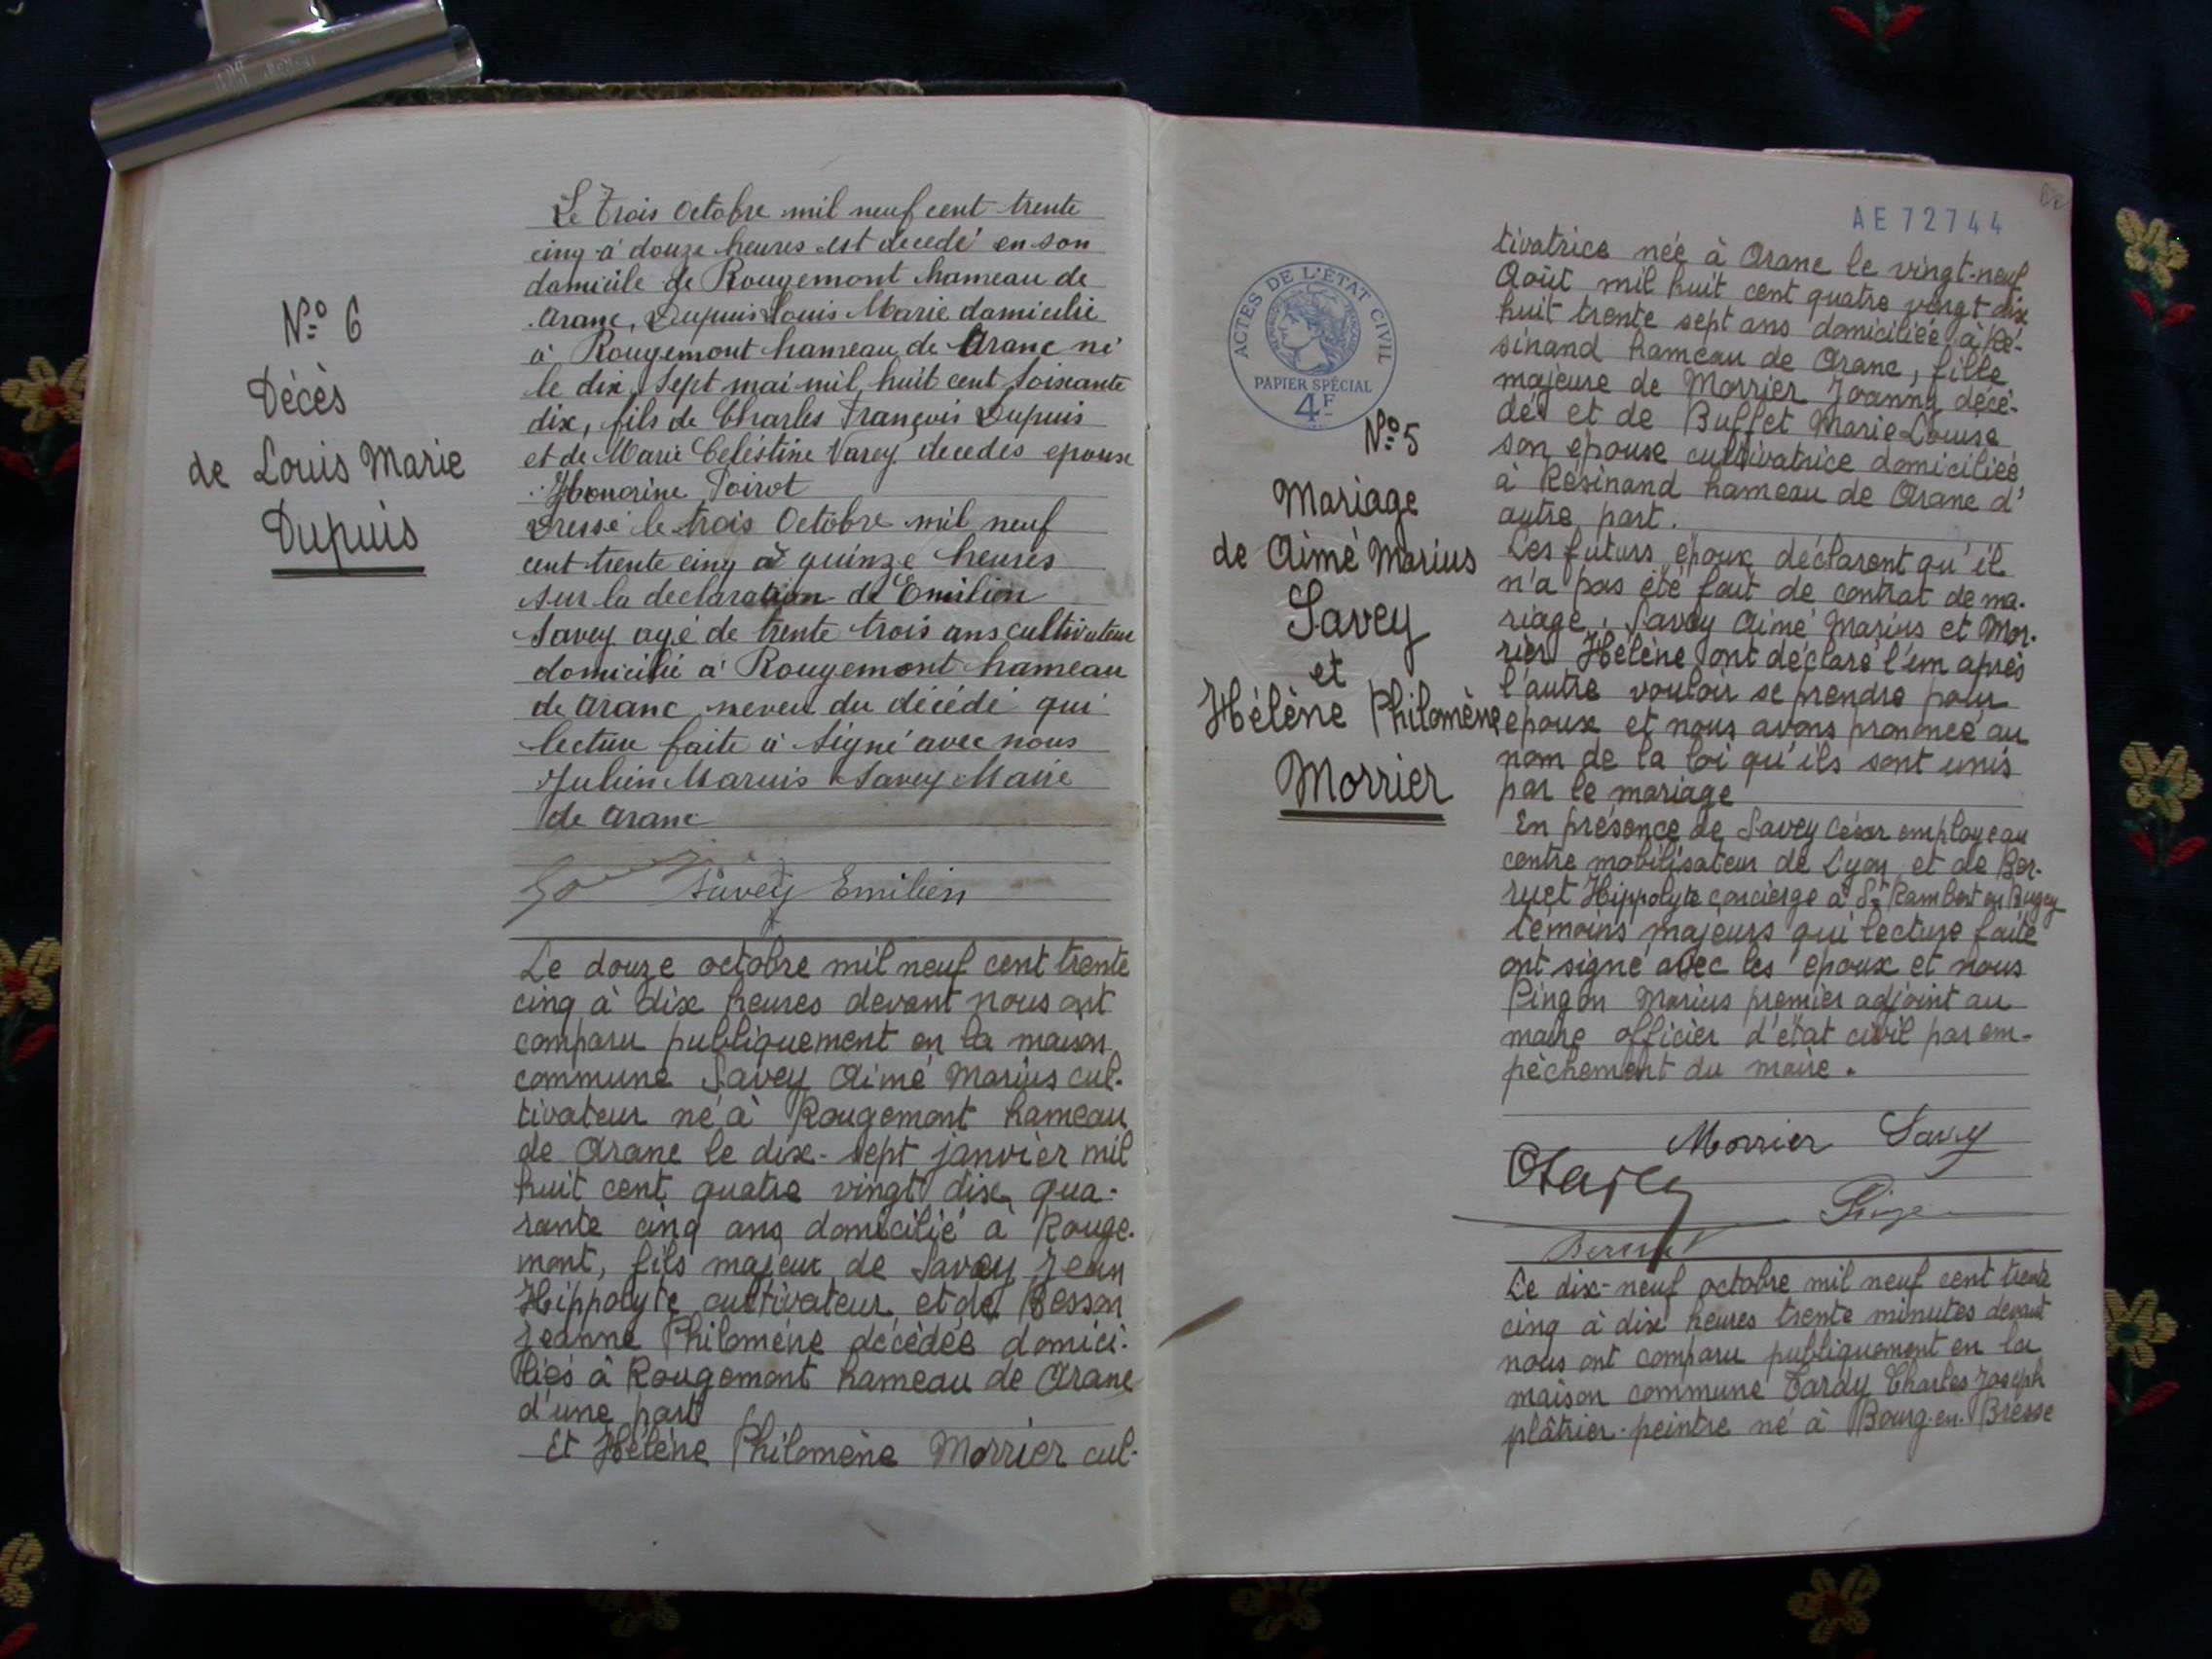 N° 6
Décès
de Louis Marie
Dupuis
Le trois Octobre mil neuf cent trente
cinq à douze heures est decedé en son
domicile de Rougemont hameau de
Aranc, Dupuis Louis Marie domicilié
à Rougemont hameau de Aranc né
le dix sept mai mil huit cent soixante
dix, fils de Charles François Dupuis
et de Marie Celéstine Varey decedés epoux
Honorine Poirot
Dressé le trois Octobre mil neuf
cent trente cinq à quinze heures
sur la declaration de Emilien
Savey agé de trente trois ans cultivateur
domicilié à Rougemont hameau
de Aranc neveu du décédé qui
lecture faite à signé avec nous
Julien Marius Savey Maire
de Aranc
Savey Emilien
Le douze octobre mil neuf cent trente
cinq à dix heures devant nous ont
comparu publiquement en la maison
commune Savey Aimé Marius cul-
tivateur né à Rougemont hameau
de Aranc le dix-sept janvier mil
huit cent quatre vingt dix, qua-
rante cinq ans domicilié à Rouge-
mont, fils majeur de Savey Jean
Hippolyte cultivateur et de Besson
Jeanne Philomène décédée domici-
liés à Rougemont hameau de Aranc
d'une part
Et Hélène Philomène Morrier cul-
AE 72744
ACTES DE L'ÉTAT CIVIL
PAPIER SPÉCIAL
4F
N° 5
Mariage
de Aimé Marius
Savey
et
Hélène Philomène
Morrier
tivatrice née à Aranc le vingt-neuf
Août mil huit cent quatre vingt dix
huit trente sept ans domiciliée à Ré-
sinand hameau de Aranc, fille
majeure de Morrier Joanny décé-
dé et de Buffet Marie Louise
son épouse cultivatrice domiciliée
à Résinand hameau de Aranc d'
autre part.
Les futurs époux déclarent qu'il
n'a pas été fait de contrat de ma-
riage. Savey Aimé Marius et Mor-
rier Hélène ont déclaré l'un après
l'autre vouloir se prendre pour
epoux et nous avons prononcé au
nom de la loi qu'ils sont unis
par le mariage
En présence de Savey César employé au
centre mobilisateur de Lyon et de Ber-
ruet Hippolyte concierge à St Rambert en Bugey
témoins majeurs qui lecture faite
ont signé avec les époux et nous
Pingon Marius premier adjoint au
maire officier d'état civil par em-
pêchement du maire.
Morrier Savey
Le dix-neuf octobre mil neuf cent trente
cinq à dix heures trente minutes devant
nous ont comparu publiquement en la
maison commune Tardy Charles Joseph
plâtrier-peintre né à Bourg-en-Bresse